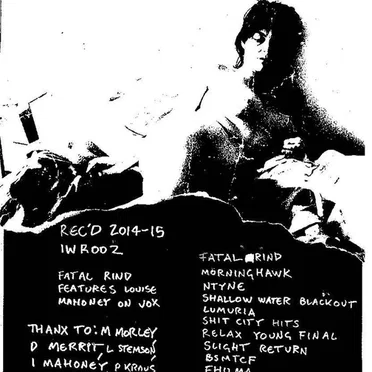 REC'D 2014-15
IWR002
FATAL RIND
FEATURES LOUISE
MAHONEY ON VOX
THANX TO: M MORLEY
D MERRIT L STEMSON
I MAHONEY P KRAUS
FATAL RIND
MORNINGHAWK
NTYNE
SHALLOW WATER BLACKOUT
LUMURIA
SHIT CITY HITS
RELAX YOUNG FINAL
SLIGHT RETURN
BSMTCF